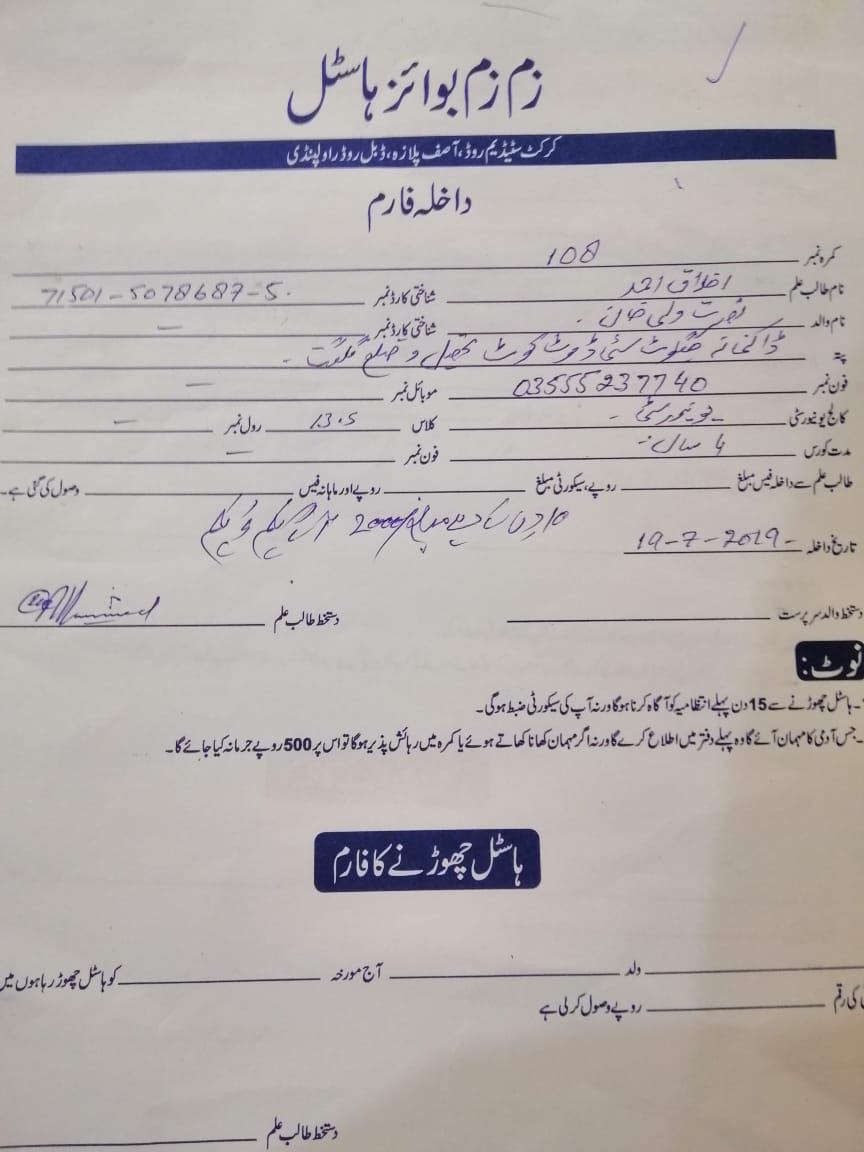 زم زم بوائز ہاسٹل
کرکٹ سٹیڈیم روڈ، آصف پلازہ، ڈبل روڈ راولپنڈی
داخلہ فارم
کمرہ نمبر 108
نام طالب علم اخلاق احمد شناختی کارڈ نمبر 71501-5078687-5
نام والد نصرت ولی خان ۔ شناختی کارڈ نمبر —
پتہ ڈاکخانہ سئی کوٹ تحصیل و ضلع گلگت ۔
فون نمبر 03555237740 موبائل نمبر —
کالج یونیورسٹی یونیورسٹی ۔ کلاس B.S رول نمبر —
مدت کورس 4 سال ۔ فون نمبر —
طالب علم سے داخلہ فیس مبلغ روپے، سیکورٹی مبلغ روپے اور ماہانہ فیس وصول کی گئی ہے۔
10 دن کے 2000/
تاریخ داخلہ 19-7-2019-
دستخط والد سرپرست دستخط طالب علم
نوٹ:
۔ ہاسٹل چھوڑنے سے 15 دن پہلے انتظامیہ کو آگاہ کرنا ہوگا ورنہ آپ کی سیکورٹی ضبط ہوگی۔
۔ جس آدمی کا مہمان آئے گا وہ پہلے دفتر میں اطلاع کرے گا ورنہ اگر مہمان کھانا کھاتے ہوئے یا کمرہ میں رہائش پذیر ہوگا تو اس پر 500 روپے جرمانہ کیا جائے گا۔
ہاسٹل چھوڑنے کا فارم
ولد آج مورخہ کو ہاسٹل چھوڑ رہا ہوں میں
کی رقم روپے وصول کر لی ہے
دستخط طالب علم